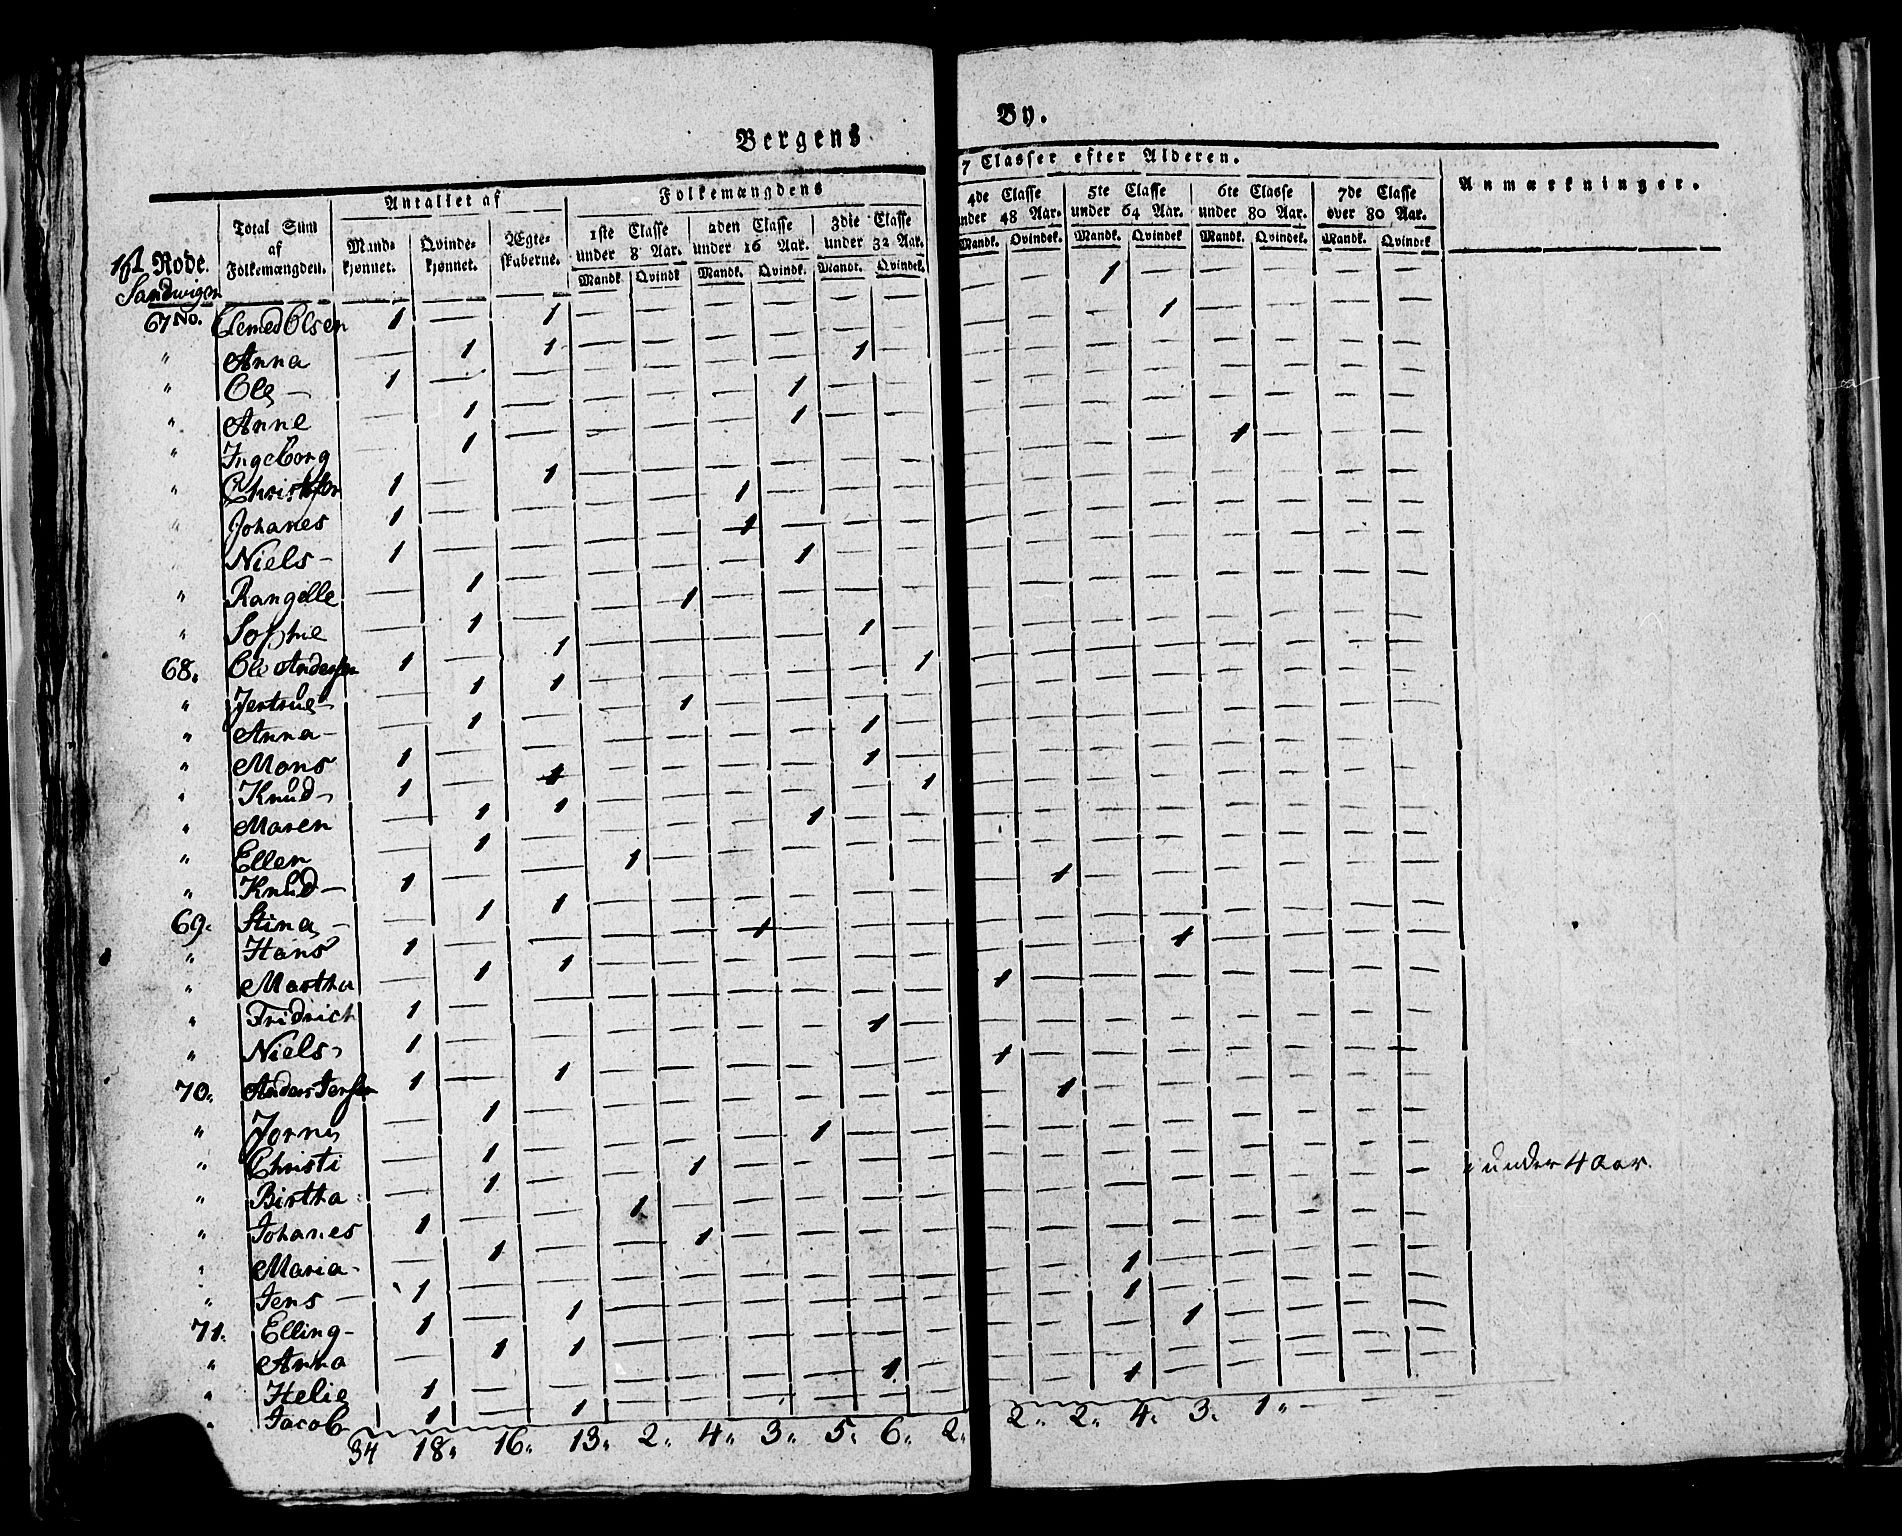 Bergens By.
Antallet af Folkemængdens 7 Classer efter Alderen. Anmærkninger.
1st Rode. Total Sum af Folkemængden. Mandkjønnet. Qvindekjønnet. Ægteskaberne. 1ste Classe under 8 Aar. 2den Classe under 16 Aar. 3die Classe under 32 Aar. 4de Classe under 48 Aar. 5te Classe under 64 Aar. 6te Classe under 80 Aar. 7de Classe over 80 Aar.
Mandk. Qvindk. Mandk. Qvindk. Mandk. Qvindek. Mandk. Qvindek. Mandk. Qvindek. Mandk. Qvindek. Mandk. Qvindek.
Sandvigen
67 No. Clemed Olsen 1 — 1 — — — — — — — — 1 — — — — —
" Anna — 1 1 — — — — — — — — — 1 — — — —
" Ole — 1 — — — — — — 1 — — — — — — — — —
" Anne — 1 — — — — 1 — — — — — — — — — —
" Ingeborg — 1 — — — — 1 — — — — — — — — — —
" Christofer 1 — 1 — — — — — — — — — — 1 — — —
" Johanes 1 — — — — 1 — — — — — — — — — — —
Niels — 1 — — — — 1 — — — — — — — — — — —
" Rangelle — 1 — — — — 1 — — — — — — — — — —
" Sophie — 1 — — 1 — — — — — — — — — — — —
68. Ole Andersen 1 — 1 — — — — 1 — — — — — — — — —
" Jertrue — 1 1 — — — — — 1 — — — — — — — —
" Anna — — 1 — — 1 — — — — — — — — — — — —
" Mons 1 — — — — — — 1 — — — — — — — — —
" Knud — 1 — 1 — — — — 1 — — — — — — — — —
" Maren — 1 1 — — — — — 1 — — — — — — — —
" Ellen — 1 — — — — 1 — — — — — — — — — —
" Knud — 1 — — 1 — — — — — — — — — — — — —
69. Stina — — 1 1 — — — — — — — 1 — — — — — —
" Hans 1 — — — — 1 — — — — — — — — — — —
" Martha — 1 1 — — — — — — — — — 1 — — — —
" Fridrich 1 — — — — — — — — 1 — — — — — — —
" Niels 1 — — — — — — 1 — — — — — — — — —
70. Anders 1 — 1 — — — — — — 1 — — — — — — —
" — 1 — — — — — — — — 1 — — — — — —
" Christi — 1 — — — — 1 — — — — — — — — — —
" Birtha — 1 — — 1 — — — — — — — — — — — —
" Johanes 1 — — 1 — — — — — — — — — — — — — 1 under 4 aar.
" Maria — — 1 — — 1 — — — — — — — — — — — —
" Jens — 1 — — — — — — — — — — 1 — — — — —
71. Elling — 1 — 1 — — — — — — — — 1 — — — — —
" Anna — 1 1 — — — — — — — — — 1 — — — —
" Helie 1 — — — — — — 1 — — — — — — — — —
" Jacob 1 — 1 — — — — — — — — 1 — — — — —
34 18. 16. 13. 2. 4. 3. 5. 6. 2. 2. 2. 4. 3. 1. — — —